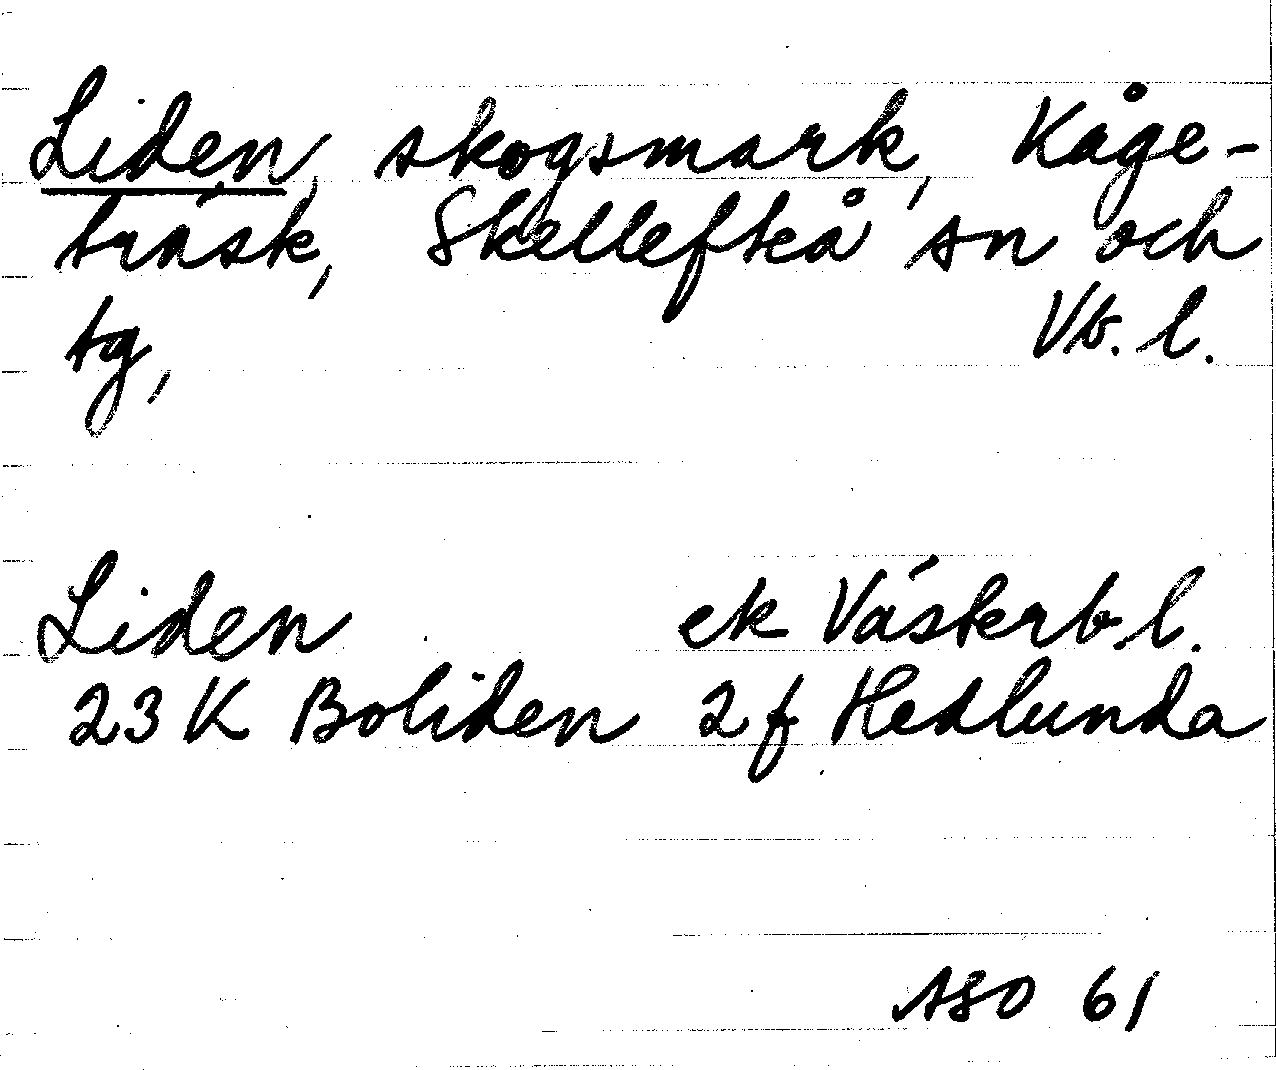 Liden, skogsmark, Kåge-
träsk, Skellefteå sn och
tg, Vb. l.
Liden ek Västerb.l.
23 K Boliden 2 f Hedlunda
ASO 61